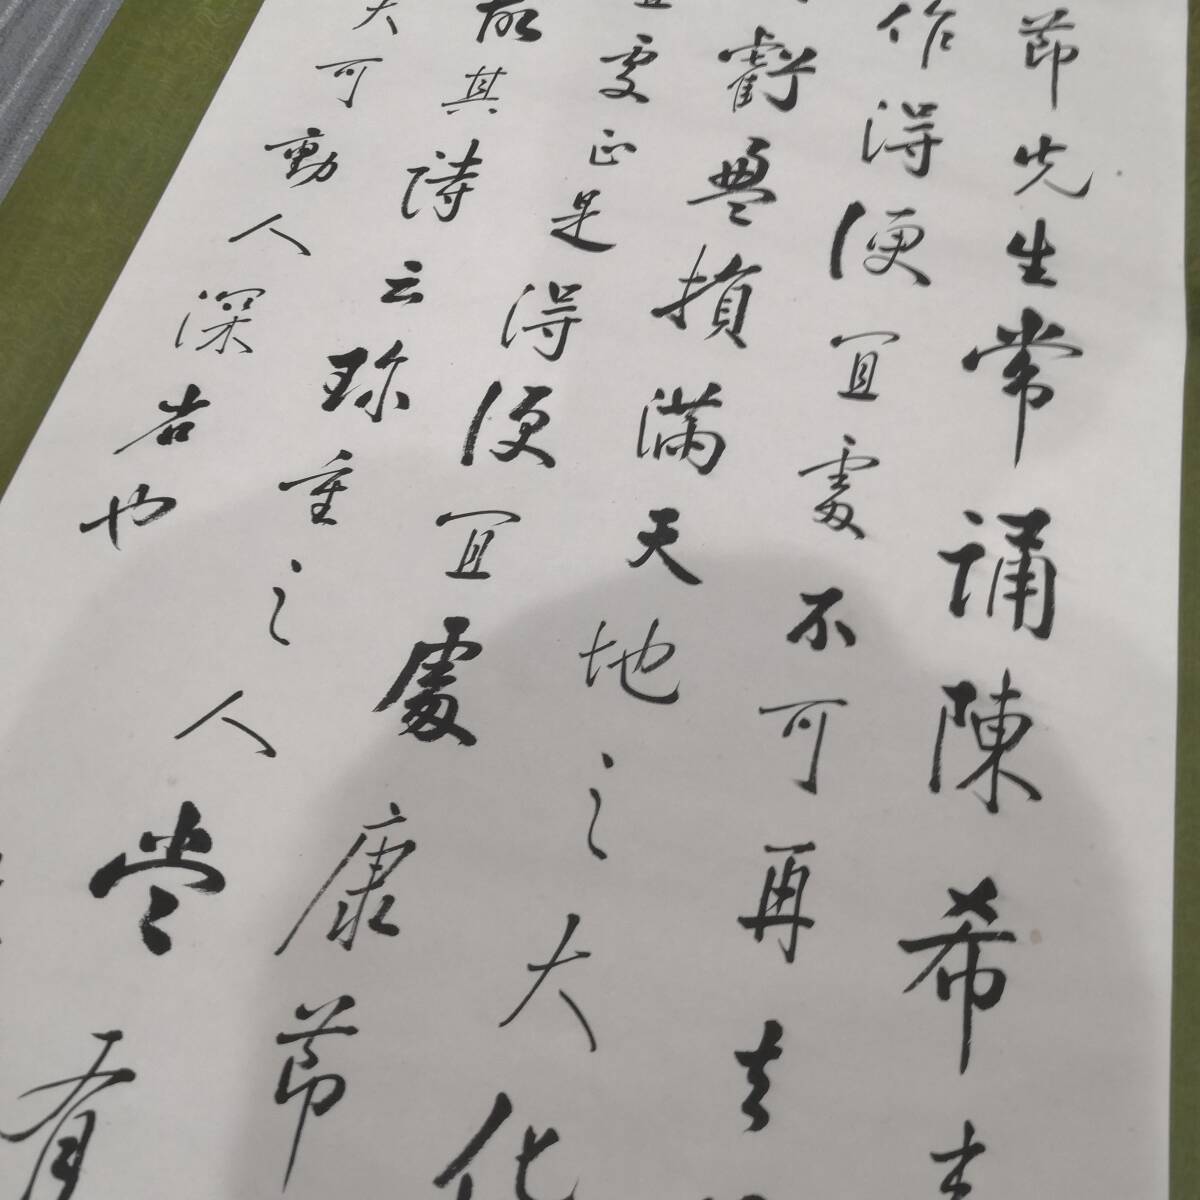 節先生常誦陳希
作得便宜處不可再去
虧盈損滿天地之大化
宜處正是得便宜處康節
故其詩云珍重之人嘗有
大可動人深省也